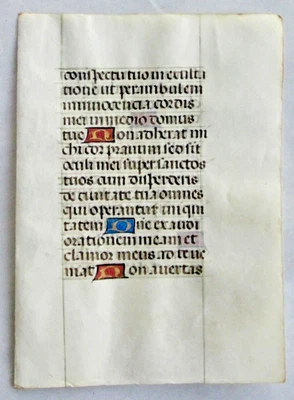 conspectu tuo in exulta
tione ut perambulem
in innocencia cordis
mei in medio domus
tue Non adherat mi
chi cor pravum sed sit
occuli mei super sanctos
tuos cum disperderis
de civitate tua omnes
qui operantur iniqui
tatem Dne exaudi
orationem meam et
clamor meus ad te ve
niat Non avertas